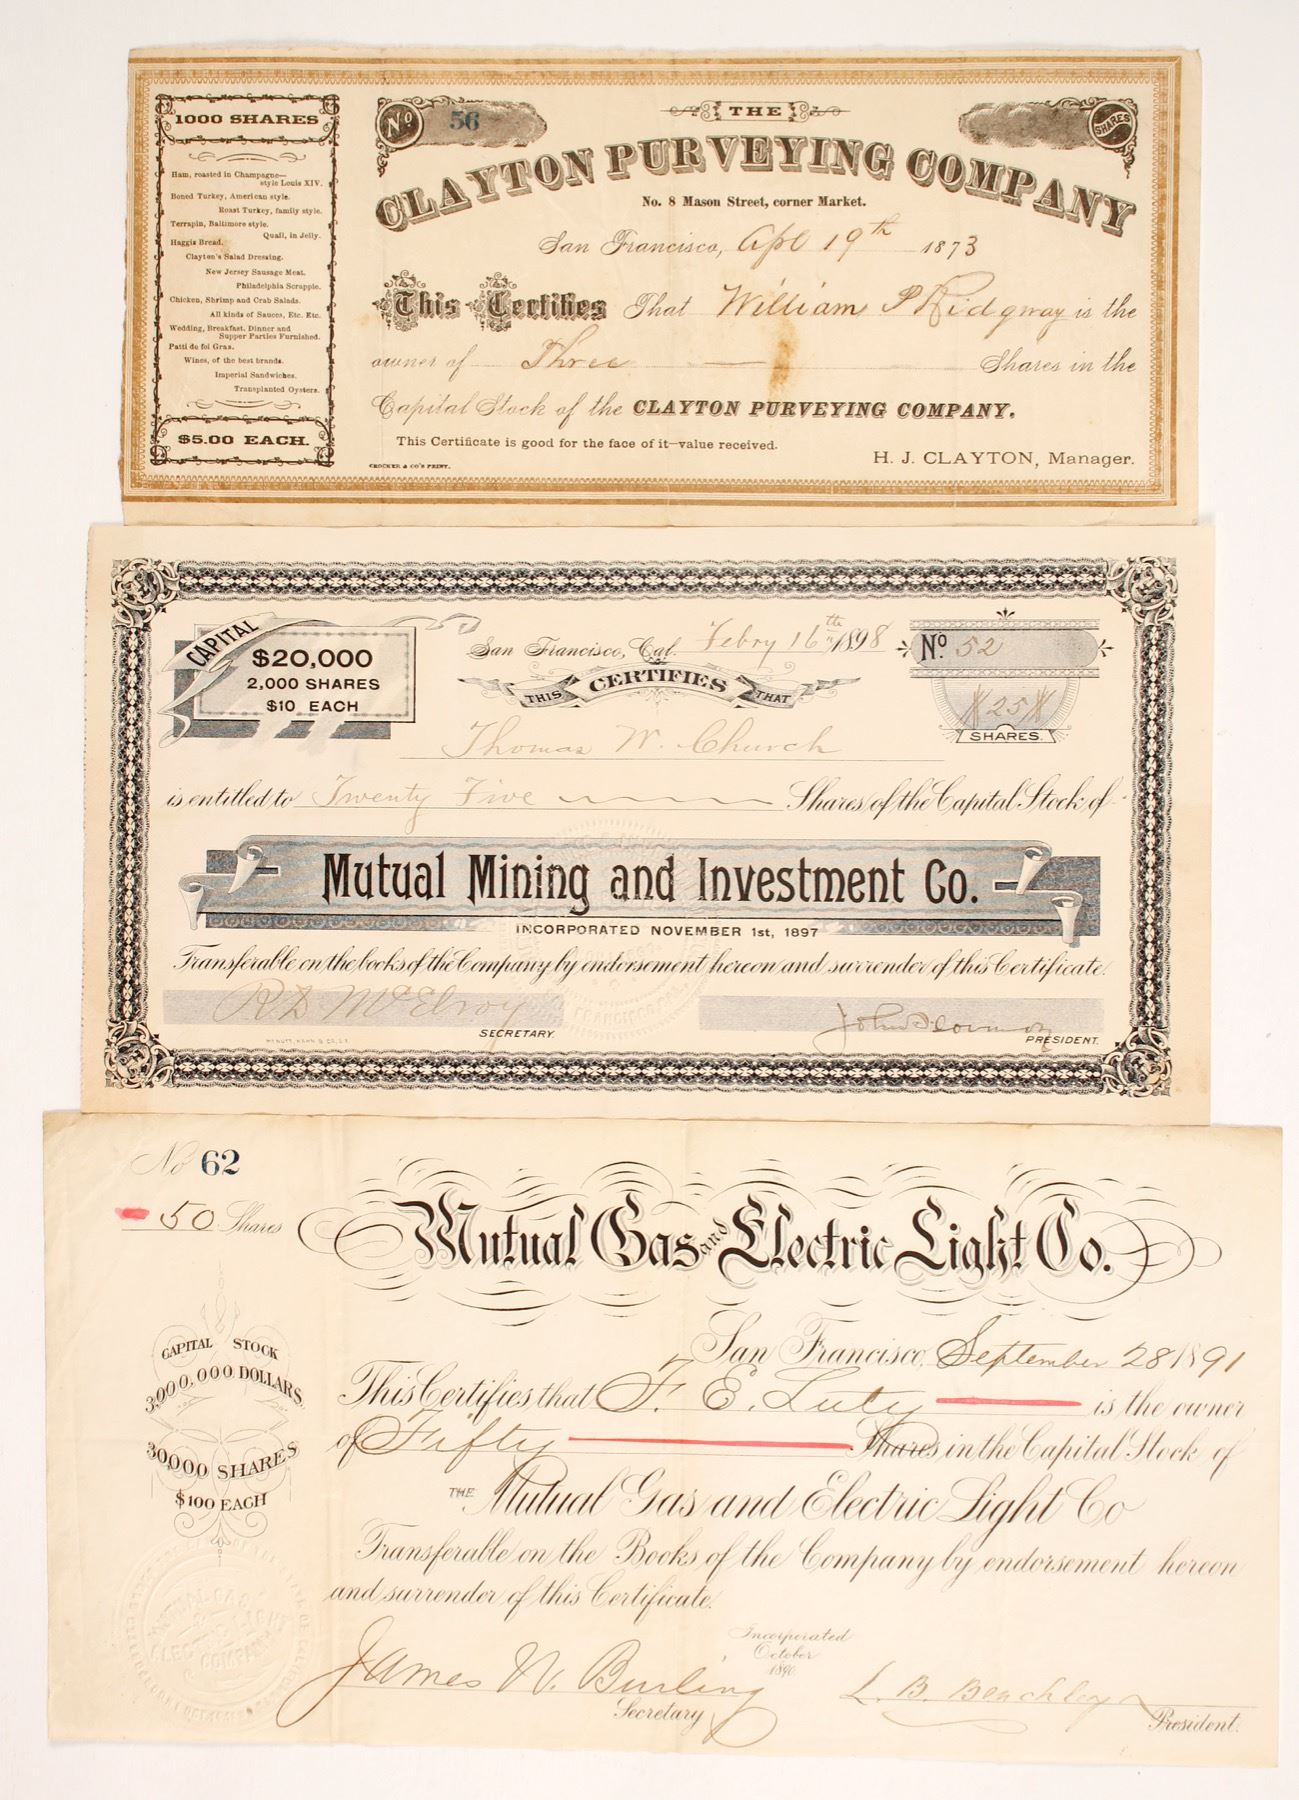 1000 SHARES
Ham, roasted in Champagne—
style Louis XIV.
Boned Turkey, American style.
Roast Turkey, family style.
Terrapin, Baltimore style.
Quail, in Jelly.
Haggis Bread.
Clayton's Salad Dressing.
New Jersey Sausage Meat.
Philadelphia Scrapple.
Chicken, Shrimp and Crab Salads.
All kinds of Sauces, Etc. Etc.
Wedding, Breakfast, Dinner and
Supper Parties Furnished.
Patti de foi Gras.
Wines, of the best brands.
Imperial Sandwiches.
Transplanted Oysters.
$5.00 EACH.
No 56
THE
SHARES
CLAYTON PURVEYING COMPANY
No. 8 Mason Street, corner Market.
San Francisco, Apl 19th 1873
This Certifies That William P Ridgway is the
owner of Three Shares in the
Capital Stock of the CLAYTON PURVEYING COMPANY.
This Certificate is good for the face of it—value received.
CROCKER & CO'S PRINT.
H. J. CLAYTON, Manager.
CAPITAL
$20,000
2,000 SHARES
$10 EACH
San Francisco, Cal. Febry 16th 1898
No. 52
THIS CERTIFIES THAT
25
SHARES.
Thomas W. Church
is entitled to Twenty Five Shares of the Capital Stock of
Mutual Mining and Investment Co.
INCORPORATED NOVEMBER 1st, 1897
Transferable on the books of the Company by endorsement hereon and surrender of this Certificate.
R D McElroy
SECRETARY.
PRESIDENT.
No 62
50 Shares
Mutual Gas and Electric Light Co.
CAPITAL STOCK
3,000,000 DOLLARS
30,000 SHARES
$100 EACH
San Francisco, September 28 1891
This Certifies that F. E. Luty is the owner
of Fifty Shares in the Capital Stock of
THE Mutual Gas and Electric Light Co
Transferable on the Books of the Company by endorsement hereon
and surrender of this Certificate.
Incorporated
October
1890
James N. Burling
Secretary
L. B. Beachley
President.